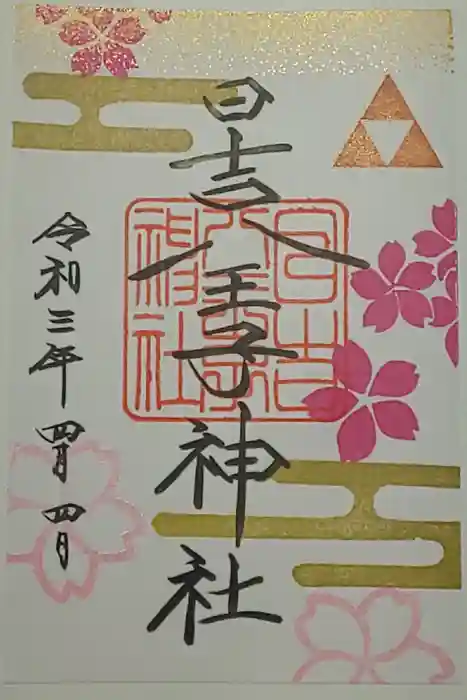 日吉八王子神社
令和三年四月四日
日吉
八王子
神社